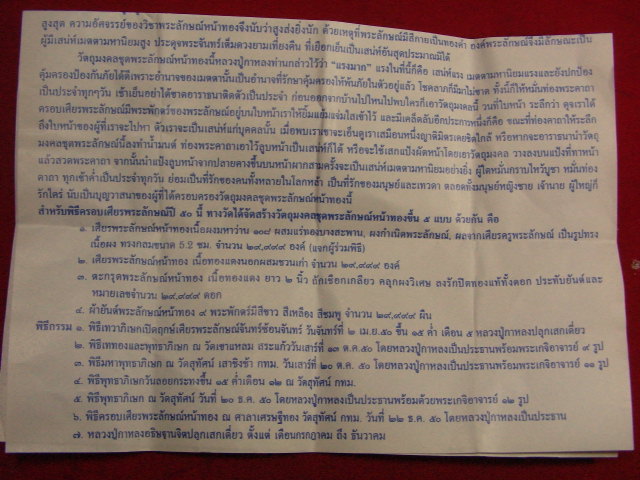 สูงสุด ความอัศจรรย์ของวิชาพระลักษณ์หน้าทองจึงนับว่าสูงส่งยิ่งนัก ด้วยเหตุที่พระลักษณ์มีสีกายเป็นทองคำ องค์พระลักษณ์จึงมีลักษณะเป็น
ผู้มีเสน่ห์เมตตามหานิยมสูง ประดุจพระจันทร์เต็มดวงยามเที่ยงคืน ที่เยือกเย็นเป็นเสน่ห์อันสุดประมาณมิได้
วัตถุมงคลชุดพระลักษณ์หน้าทองนี้หลวงปู่กาหลงท่านกล่าวไว้ว่า "แรงมาก" แรงในที่นี้ก็คือ เสน่ห์แรง เมตตามหานิยมแรงและยังปกป้อง
คุ้มครองป้องกันภัยได้ดีเพราะอำนาจของเมตตานั้นเป็นอำนาจที่รักษาคุ้มครองให้พ้นภัยในตัวอยู่แล้ว โชคลาภก็มีมกไม่ขาด ทั้งนี้ก็ให้หมั่นท่องพระคาถา
เป็นประจำทุกๆวัน เช้าเย็นอย่าได้ขาดอาราธนาติดตัวเป็นประจำ ก่อนออกจากบ้านไปไหนไปพบใครก็เอาวัตถุมงคลนี้ วนที่ใบหน้า ระลึกว่า ดุจเราได้
ครอบเศียรพระลักษณ์มีพระพักตร์ของพระลักษณ์อยู่บนใบหน้าเราให้ยิ้มแย้มแจ่มใสเข้าไว้ และมีเคล็ดลับอีกประการหนึ่งก็คือ ขณะที่ท่องคาถาให้ระลึก
ถึงใบหน้าของผู้ที่เราจะไปหา ตัวเราจะเป็นเสน่ห์แก่บุคคลนั้น เมื่อพบเราเขาจะเอ็นดูเราเสมือนหนึ่งญาติมิตรเคยชิดใกล้ หรือหากจะอาราธนานำวัตถุ
มงคลชุดพระลักษณ์นี้ลงทำน้ำมนต์ ท่องพระคาถาเอาไว้ลูบหน้าเป็นเสน่ห์ก็ได้ หรือจะใช้เสกแป้งผัดหน้าโดยเอาวัตถุมงคล วางลงบนแป้งที่ทาหน้า
แล้วสวดพระคาถา จากนั้นนำแป้งลูบหน้าจากปลายคางขึ้นบนหน้าผากสามครั้งจะเป็นเสน่ห์เมตตามหานิยมอย่างยิ่ง ผู้ใดหมั่นกราบไหว้บูชา หมั่นท่อง
คาถา ทุกเช้าค่ำเป็นประจำทุกวัน ย่อมเป็นที่รักของคนทั้งหลายในโลกหล้า เป็นที่รักของมนุษย์และเทวดา ตลอดทั้งมนุษย์หญิงชาย เจ้านาย ผู้ใหญ่ก็
รักใคร่ นับเป็นบุญวาสนาของผู้ที่ได้ครอบครองวัตถุมงคลชุดพระลักษณ์หน้าทองนี้
สำหรับพิธีครอบเศียรพระลักษณ์ปี ๕๐ นี้ ทางวัดได้จัดสร้างวัตถุมงคลชุดพระลักษณ์หน้าทองขึ้น ๕ แบบ ด้วยกัน คือ
๑. เศียรพระลักษณ์หน้าทองเนื้อผงมหาว่าน ๑๐๙ ผสมแร่ทองบางสะพาน, ผงกำเนิดพระลักษณ์, ผสจากเศียรครูพระลักษณ์ เป็นรูปทรง
เนื้อผง ทรงกลมขนาด 5.2 ซม. จำนวน ๒๙,๙๙๙ องค์ (แจกผู้ร่วมพิธี)
๒. เศียรพระลักษณ์หน้าทอง เนื้อทองแดงนอกผสมชนวนเก่า จำนวน ๒๙,๙๙๙ องค์
๓. ตะกรุดพระลักษณ์หน้าทอง เนื้อทองแดง ยาว ๒ นิ้ว ถักเชือกเกลียว คลุกผงวิเศษ ลงรักปิดทองแท้ทั้งดอก ประทับยันต์และ
หมายเลขจำนวน ๒๙,๙๙๙ ดอก
๔. ผ้ายันต์พระลักษณ์หน้าทอง ๙ พระพักตร์มีสีขาว สีเหลือง สีชมพู จำนวน ๒๙,๙๙๙ ผืน
พิธีกรรม ๑. พิธีเทวาภิเษกเปิดฤกษ์เศียรพระลักษณ์จันทร์ซ้อนจันทร์ วันจันทร์ที่ ๒ เม.ย.๕๐ ขึ้น ๑๕ ค่ำ เดือน ๕ หลวงปู่กาหลงปลุกเสกเดี่ยว
๒. พิธีเททองและพุทธาภิเษก ณ วัดเขาแหลม สระแก้ววันเสาร์ที่ ๑๓ ต.ค.๕๐ โดยหลวงปู่กาหลงเป็นประธานพร้อมพระเกจิอาจารย์ ๙ รูป
๓. พิธีมหาพุทธาภิเษก ณ วัดสุทัศน์ เสาชิงช้า กทม. วันเสาร์ที่ ๒๐ ต.ค. ๕๐ โดยหลวงปู่กาหลงเป็นประธานพร้อมพระเกจิอาจารย์ ๑๑ รูป
๔. พิธีพุทธาภิเษกวันลอยกระทงขึ้น ๑๕ ค่ำเดือน ๑๒ ณ วัดสุทัศน์ กทม.
๕. พิธีพุทธาภิเษก ณ วัดสุทัศน์ วันที่ ๒๐ ธ.ค. ๕๐ โดยหลวงปู่กาหลงเป็นประธานพร้อมด้วยพระเกจิอาจารย์ ๑๒ รูป
๖. พิธีครอบเศียรพระลักษณ์หน้าทอง ณ ศาลาเศรษฐีทอง วัดสุทัศน์ กทม. วันที่ ๒๒ ธ.ค. ๕๐ โดยหลวงปู่กาหลงเป็นประธาน
๗. หลวงปู่กาหลงอธิษฐานจิตปลุกเสกเดี่ยว ตั้งแต่ เดือนกรกฎาคม ถึง ธันวาคม